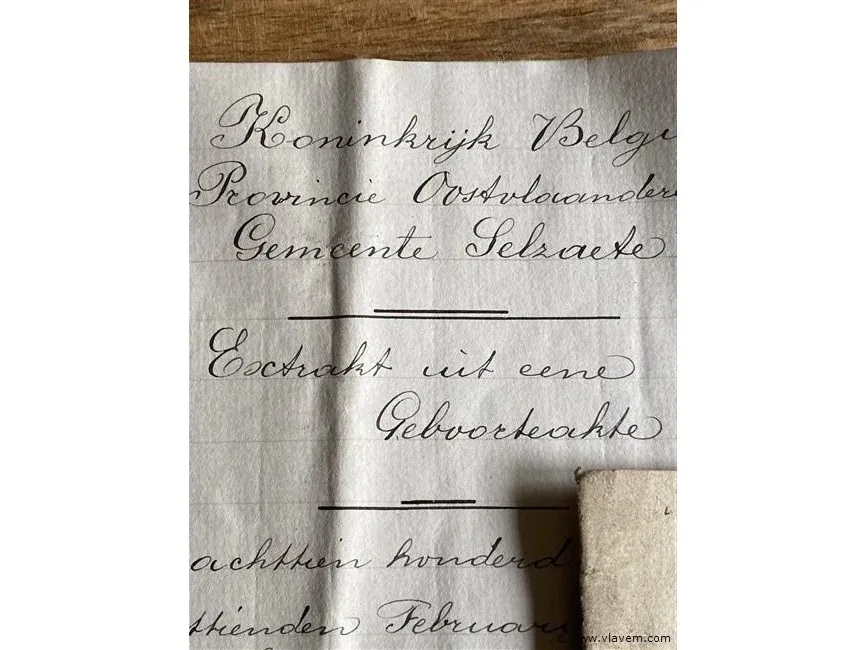 Koninkrijk Belgi
Provincie Oostvlaandere
Gemeente Selzaete
Extrakt uit eene
Geboorteakte
achttien honderd
ttienden Februar
www.vlavem.com